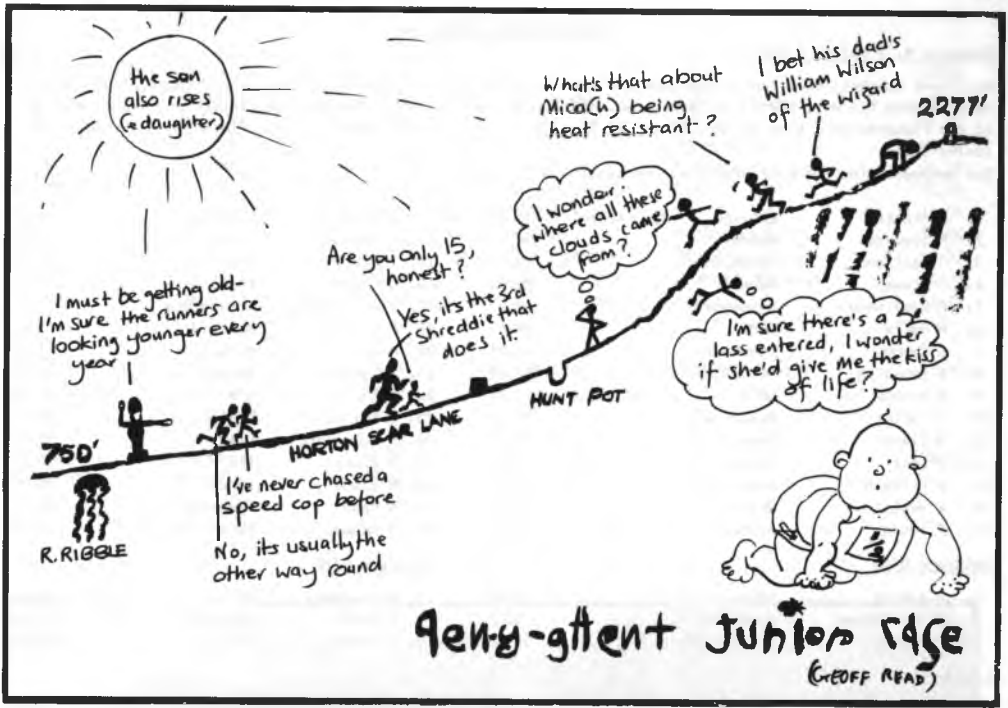 the son
also rises
(& daughter)
What's that about
Mica(h) being
heat resistant?
I bet his dad's
William Wilson
of the Wizard
2277'
I wonder
where all these
clouds came
from?
Are you only 15,
honest?
Yes, its the 3rd
Shreddie that
does it.
I must be getting old-
I'm sure the runners are
looking younger every
year
I'm sure there's a
lass entered, I wonder
if she'd give me the kiss
of life?
HUNT POT
HORTON SCAR LANE
750'
R. RIBBLE
I've never chased a
speed cop before
No, its usually the
other way round
Pen-y-ghent junior race
(GEOFF READ)